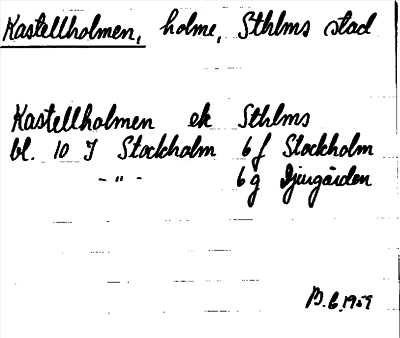 Kastellholmen, holme, Sthlms stad
Kastellholmen ek Sthlms
bl. 10 I Stockholm 6 f Stockholm
- " - 6 g Djurgården
B. 6. 1959